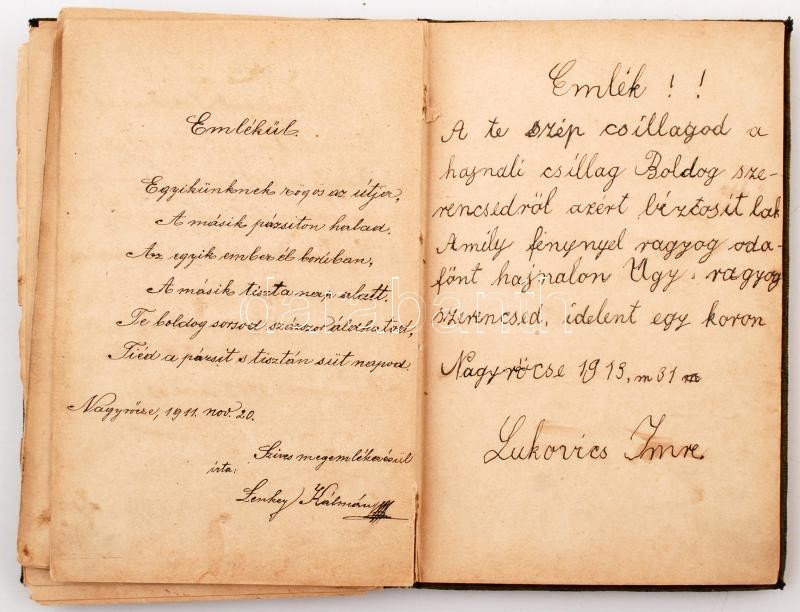 Emlékül.
Egyikünknek rögos az útja,
A másik pázsiton halad.
Az egyik ember él borúban,
A másik tiszta nap alatt.
Te boldog sorsod százszor áldhatod,
Tiéd a pázsit s tisztán süt napod.
Nagyrőcze, 1911. nov. 20.
Szives megemlékezésül
irta:
Lenkey Kálmán
Emlék!!
A te szép csillagod a
hajnali csillag Boldog sze-
rencsedről azért biztosít lak
Amily fénynyel ragyog oda-
fönt hajnalon Úgy ragyog
szerencsed, idelent egy koron
Nagyrőcse 1913. m 31
Lukovics Imre
darabanth